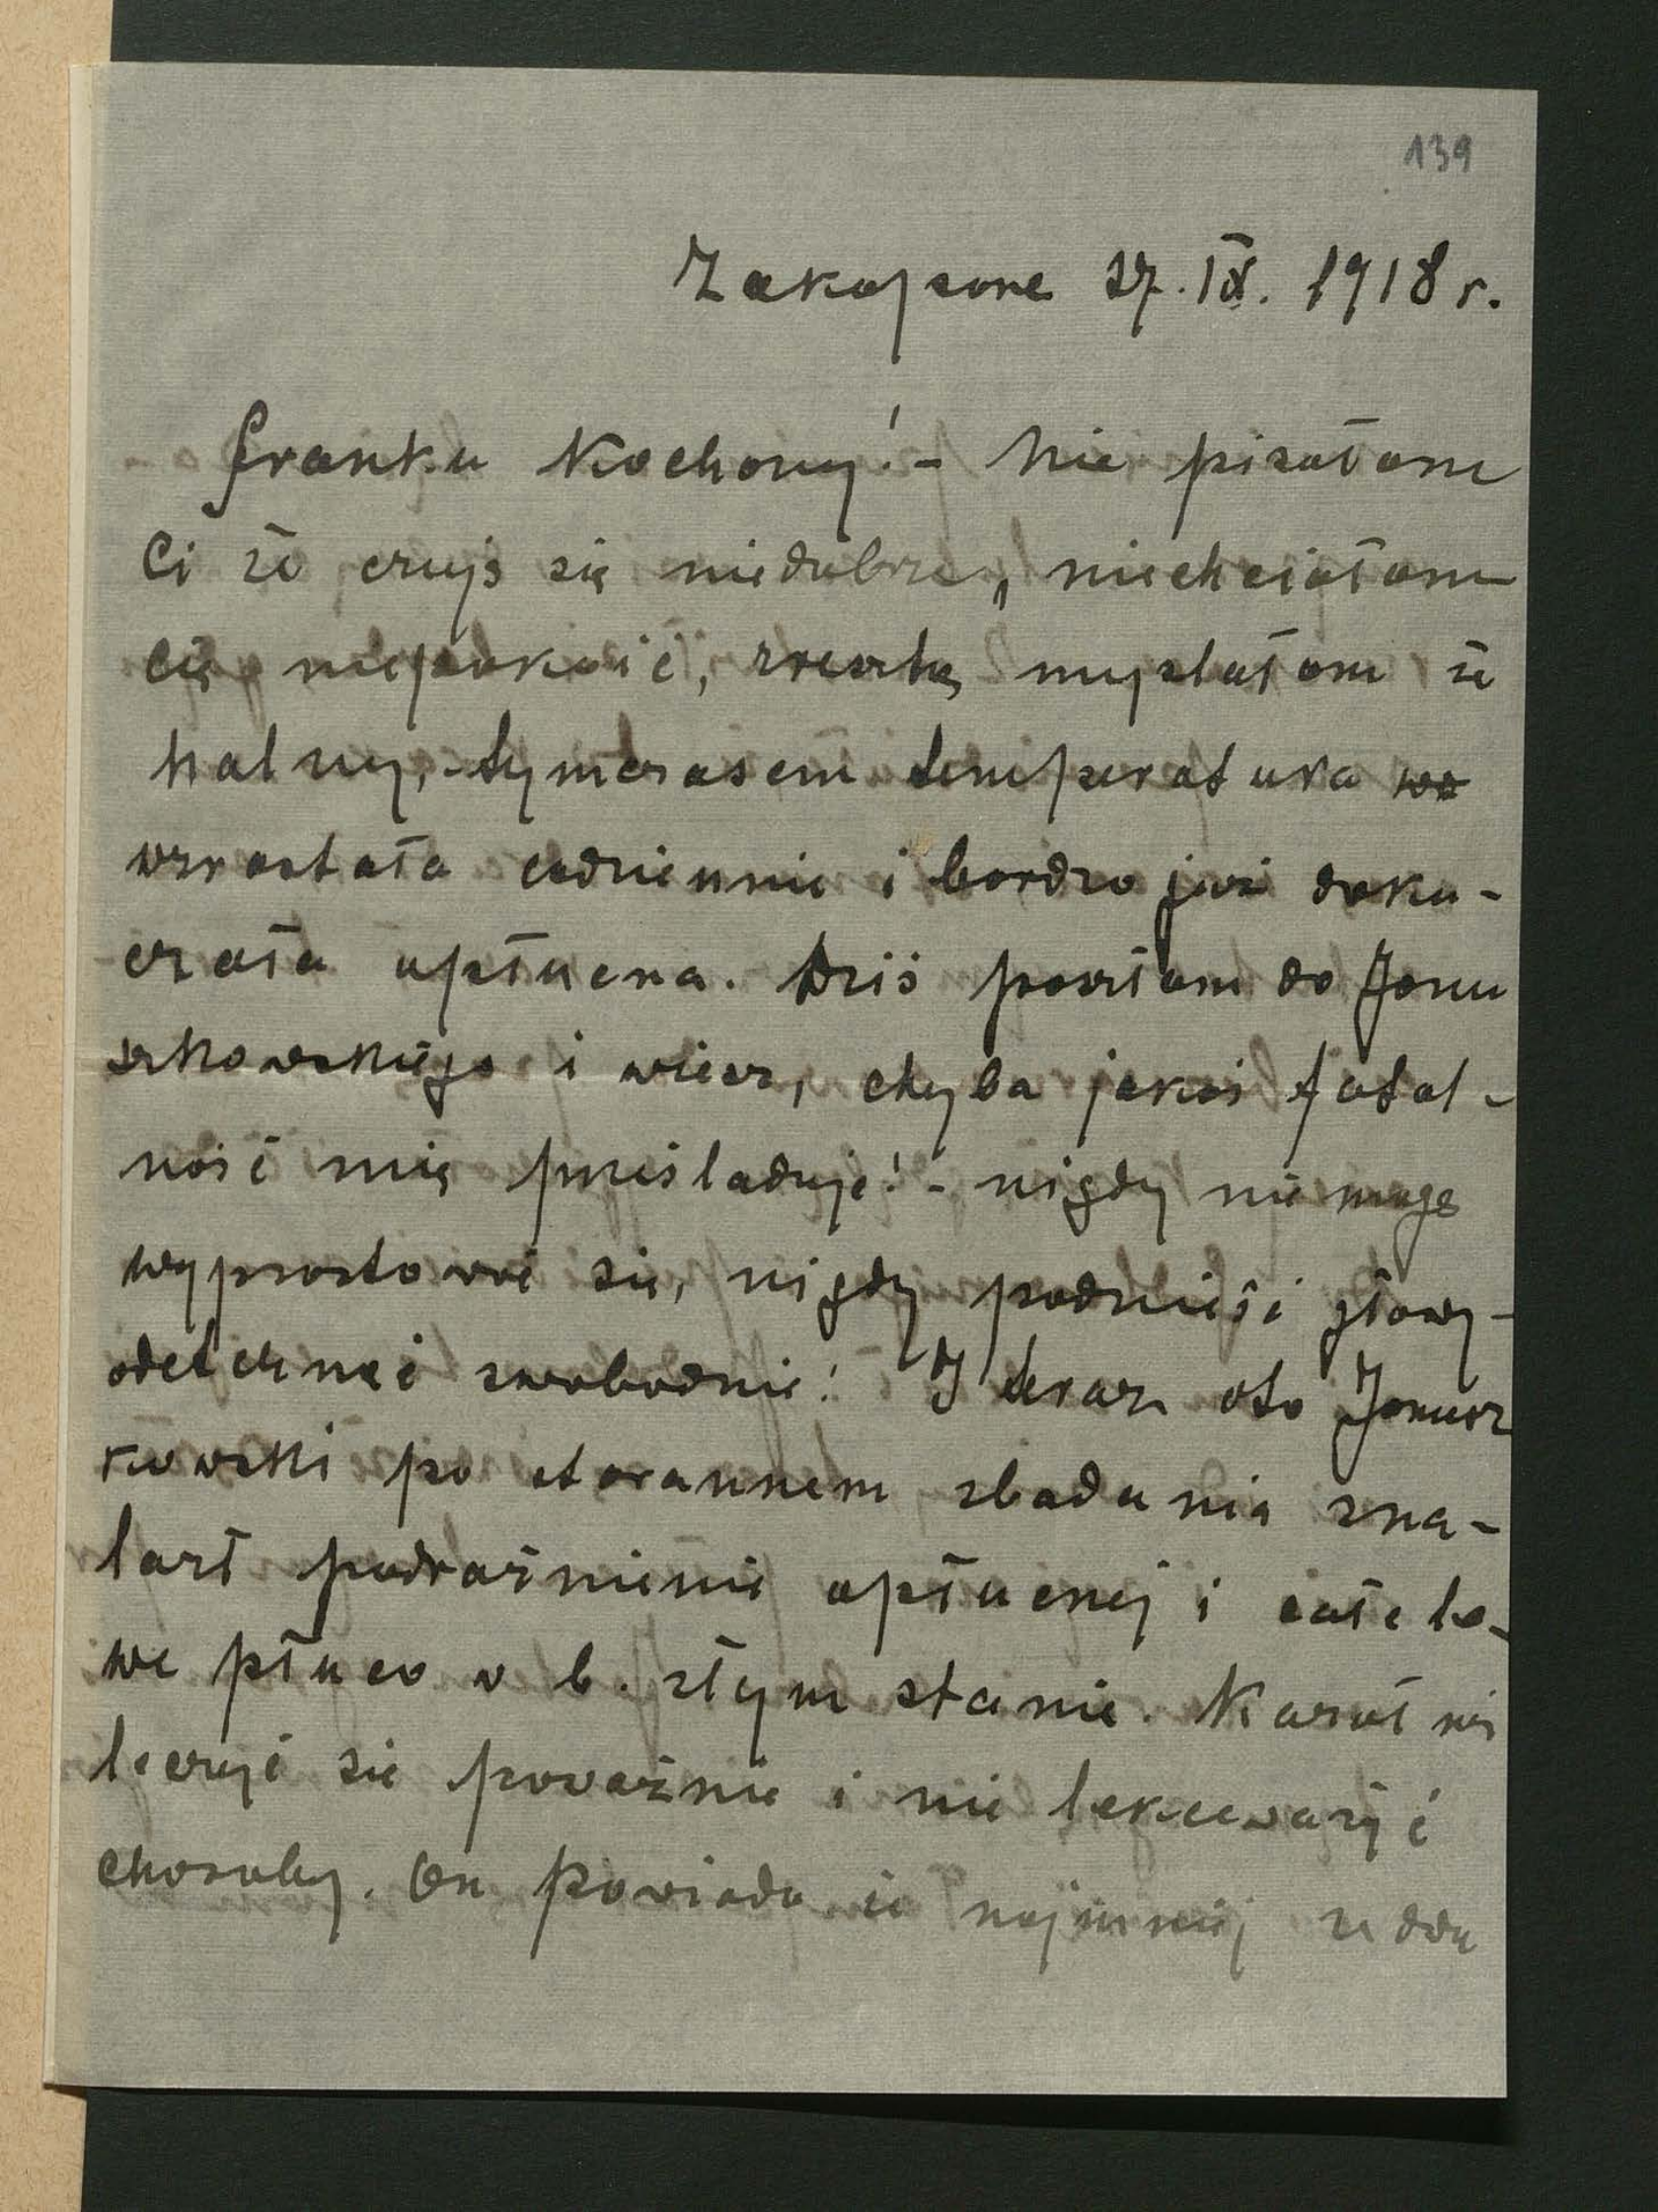 139
Zakopane 27. IX. 1918 r.
Franku Kochany! - Nie pisałam
Ci że czuję się niedobrze, niechciałam
Cię niepokoić, zresztą myślałam że
halny, - tymczasem temperatura
wzrastała codziennie i bardzo już doku-
czała opłucna. Dziś poszłam do Janu
szkowskiego i wiesz, chyba jakaś fatal-
ność mię prześladuje! - nigdy nie mogę
wyprostować się, nigdy podnieść głowy -
odetchnąć swobodnie! I teraz oto Janusz
kowski po starannem zbadaniu zna-
lazł podrażnienie opłucnej i całe le-
we płuco w b. złym stanie. Kazał mi
leczyć się poważnie i nie lekceważyć
choroby. On powiada że najmniej ze dwa